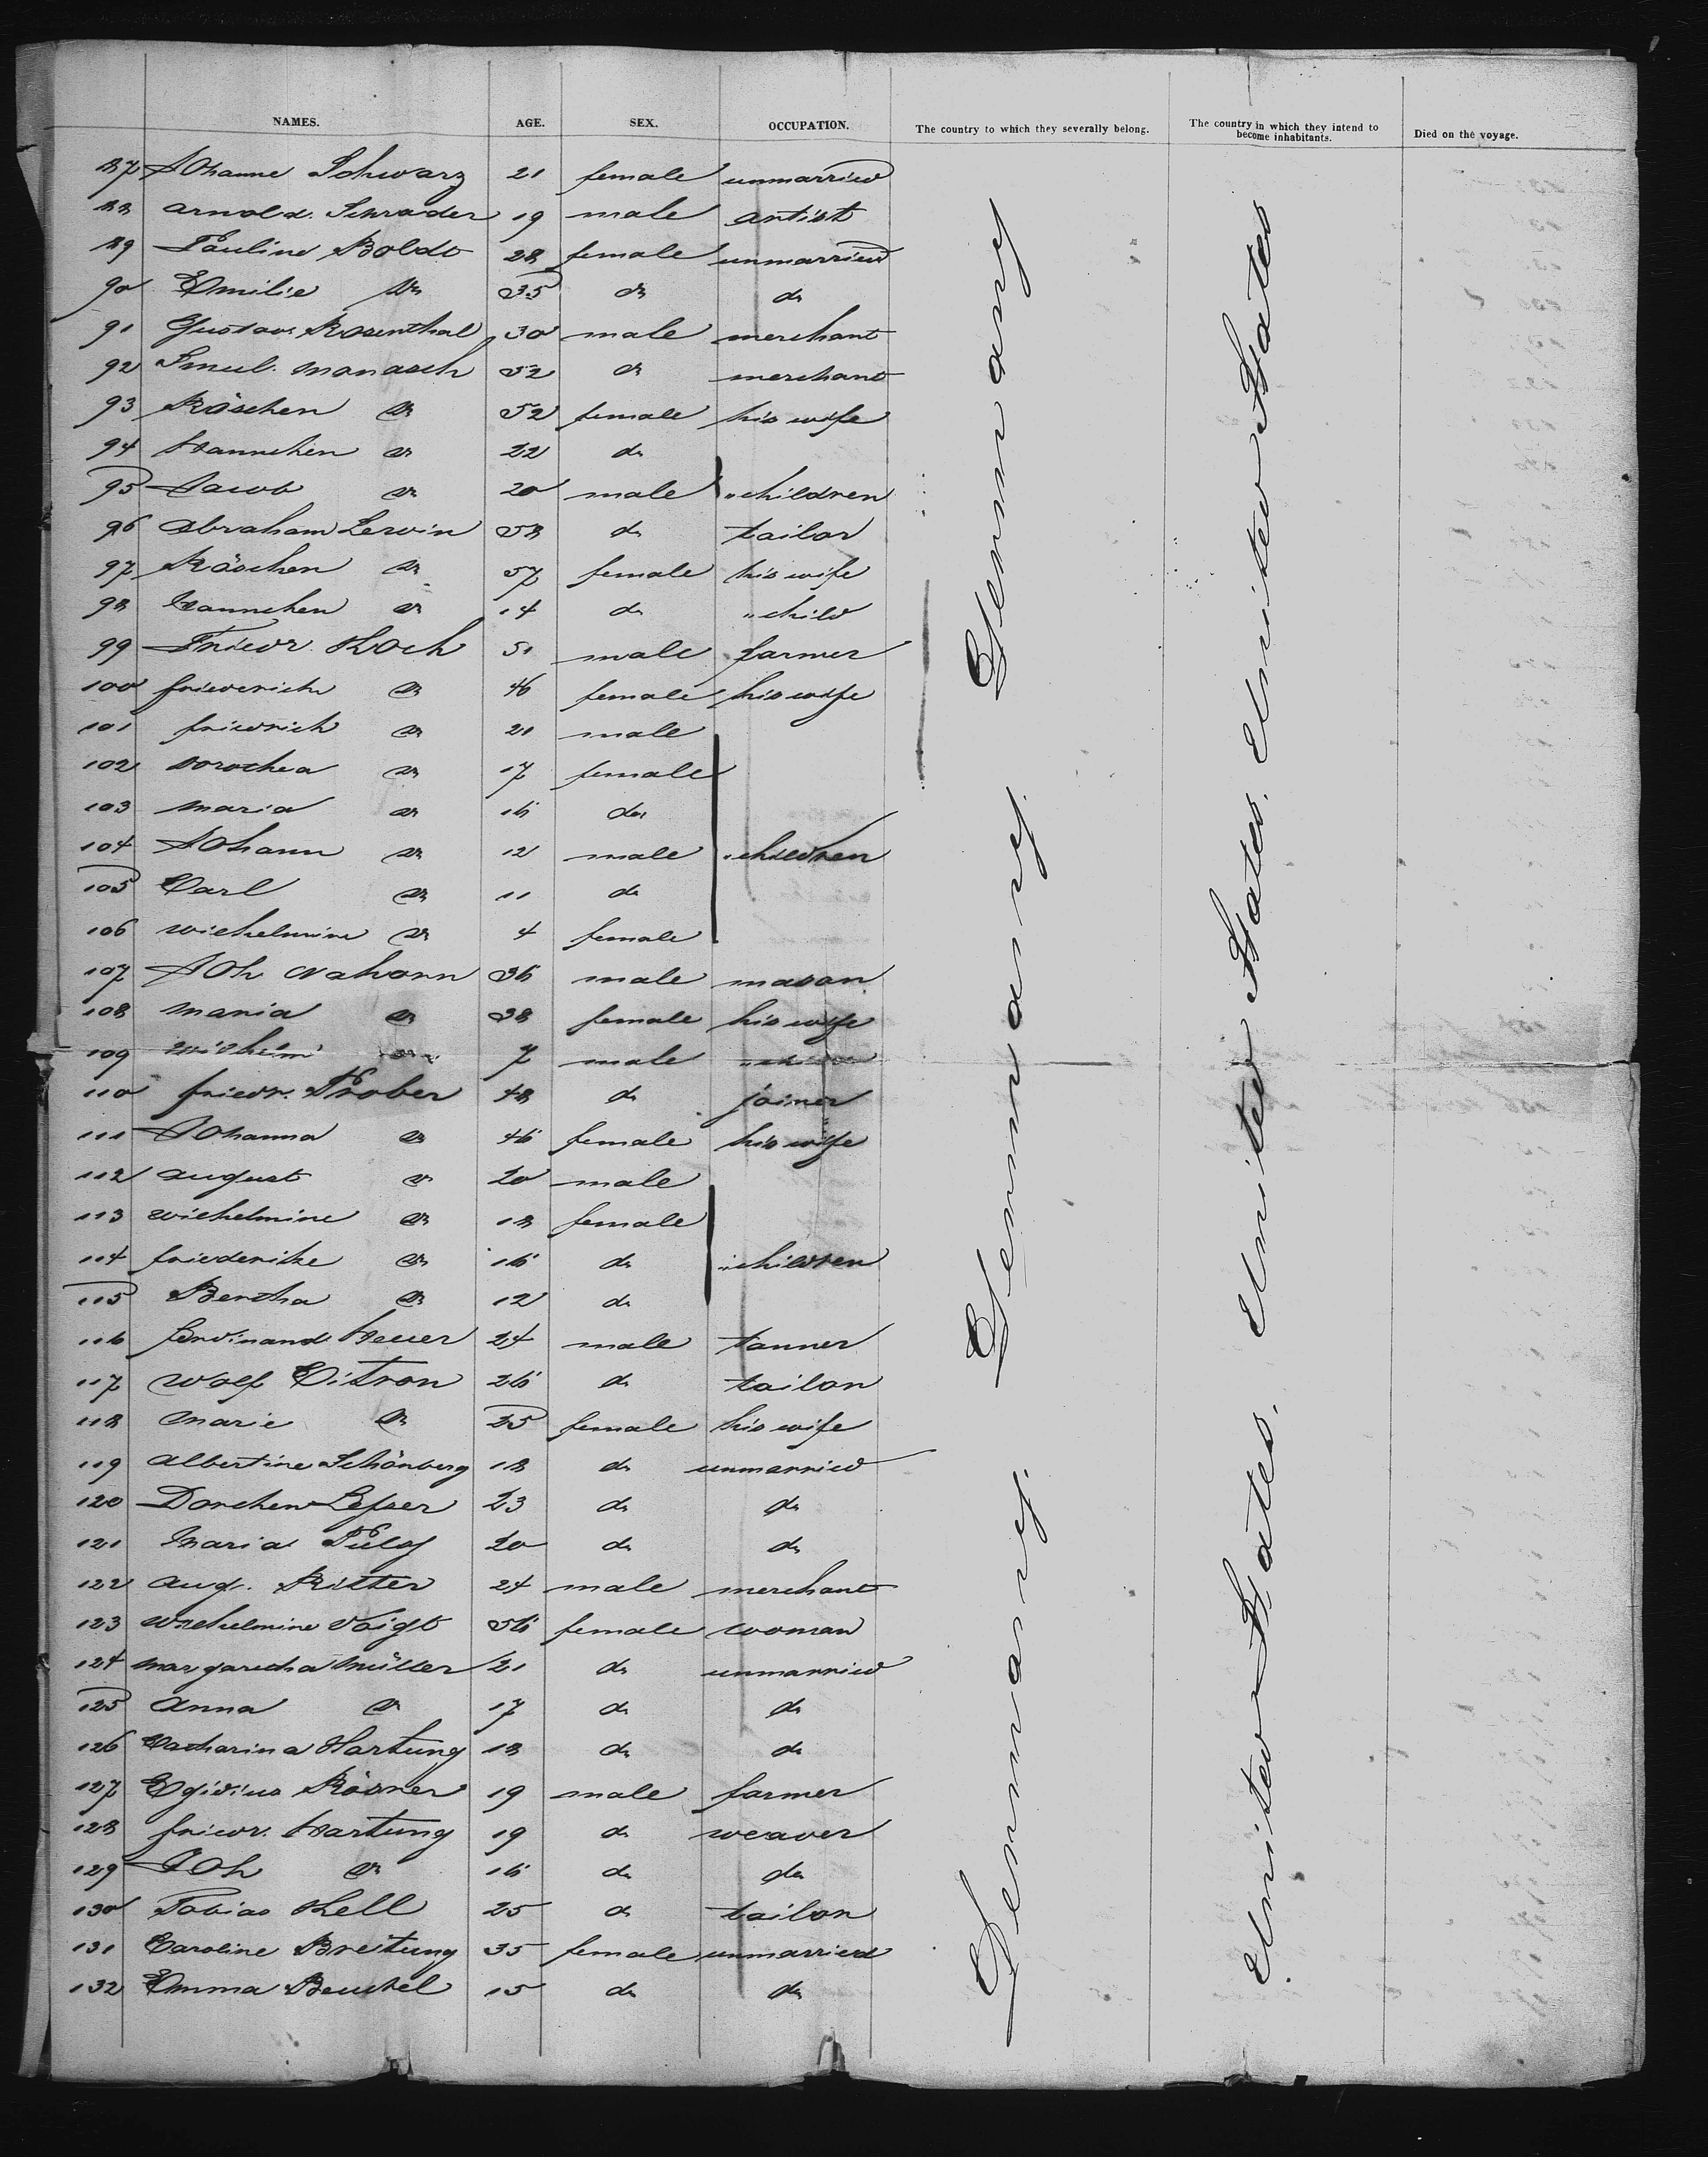 NAMES. AGE. SEX. OCCUPATION. The country to which they severally belong. The country in which they intend to become inhabitants. Died on the voyage.
87 Johanne Schwarz 21 female unmarried
88 Arnold Schrader 19 male artist
89 Pauline Boldt 28 female unmarried
90 Emilie do 35 do do
91 Gustav Rosenthal 30 male merchant
92 Smul. Manasch 52 do merchant
93 Röschen do 52 female his wife
94 Hannchen do 22 do
95 Jacob do 20 male " children
96 Abraham Lewin 58 do tailor
97 Röschen do 57 female his wife
98 Hannchen do 14 do " child
99 Friedr. Koch 51 male farmer
100 Friederich do 46 female his wife
101 Friedrich do 21 male
102 Dorothea do 17 female
103 Maria do 16 do
104 Johann do 12 male " children
105 Carl do 11 do
106 Wilhelmine do 4 female
107 Joh 36 male mason
108 Maria do 38 female his wife
109 Wilhelm do 7 male " child
110 Friedr. Prober 48 do joiner
111 Johanna do 46 female his wife
112 August do 20 male
113 Wilhelmine do 18 female
114 Friederike do 16 do " children
115 Bertha do 12 do
116 Ferdinand Heuer 24 male tanner
117 Wolf Citron 26 do tailor
118 Marie do 25 female his wife
119 Albertine Schönberg 18 do unmarried
120 Dorchen Lesser 23 do do
121 Maria 20 do do
122 Aug. Ritter 24 male merchant
123 Wilhelmine Voigt 56 female woman
124 Margaretha Müller 21 do unmarried
125 Anna do 17 do do
126 Catharina Hartung 18 do do
127 Egidius Rösner 19 male farmer
128 Friedr. Hartung 19 do weaver
129 Joh do 16 do do
130 Tobias Kell 25 do tailor
131 Caroline Breitung 35 female unmarried
132 Emma Beuchel 15 do do
Germany. Germany. Germany
United States. United States. United States